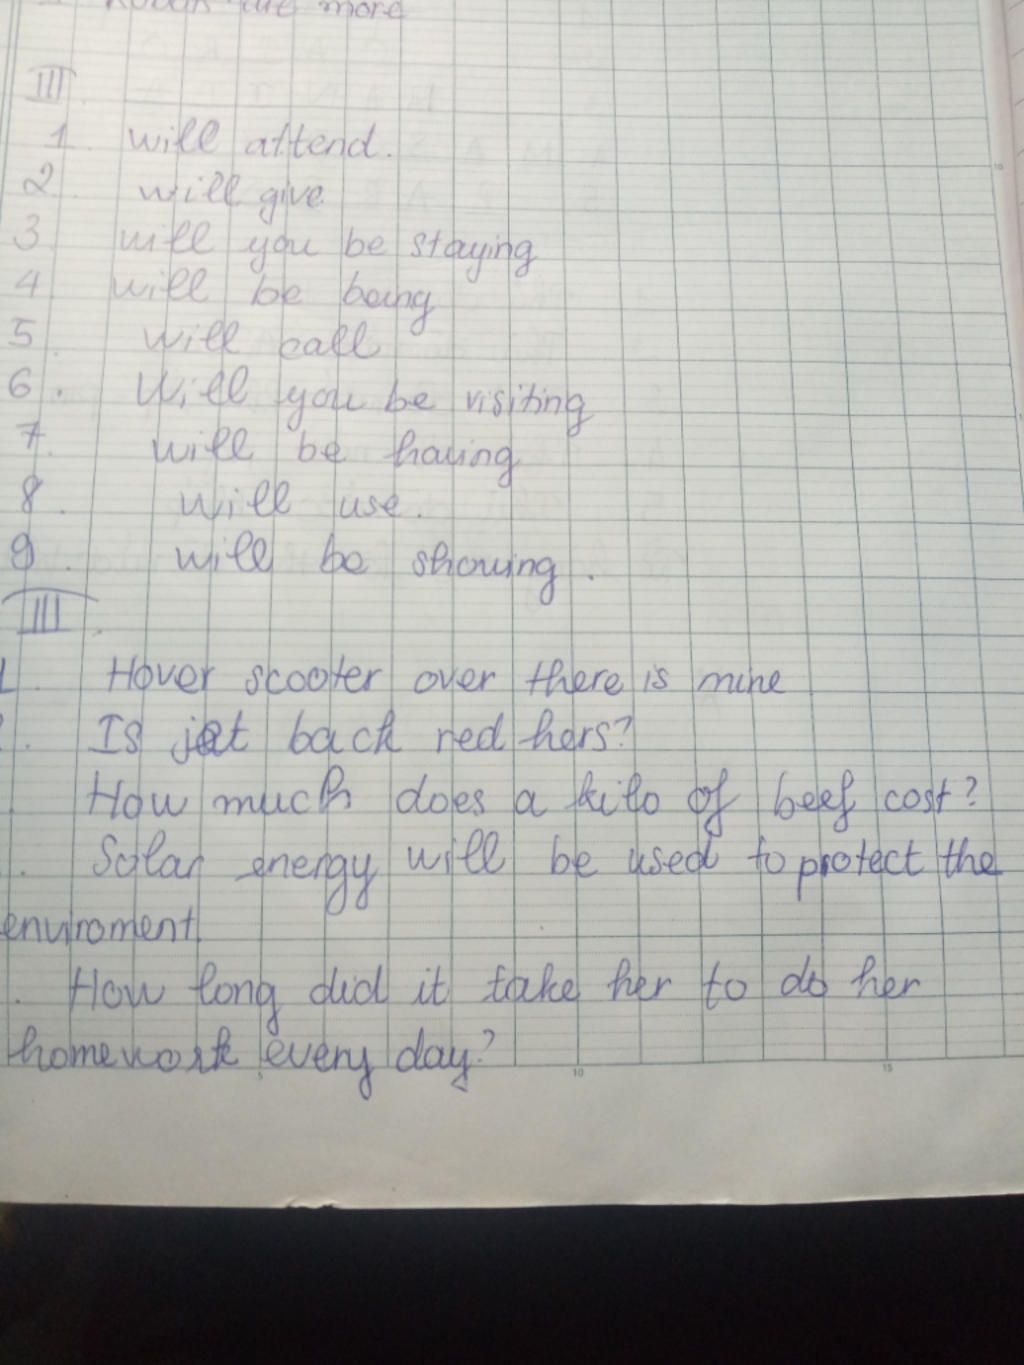 more
III.
1. will attend.
2. will give
3. will you be staying
4 will be being
5. will call
6. Will you be visiting
7. will be having
8. will use.
9. will be showing.
III.
1. Hover scooter over there is mine
. Is jet back red hers?
How much does a kilo of beef cost?
. Solar energy will be used to protect the
enviroment
. How long did it take her to do her
homework every day?
5 10 15